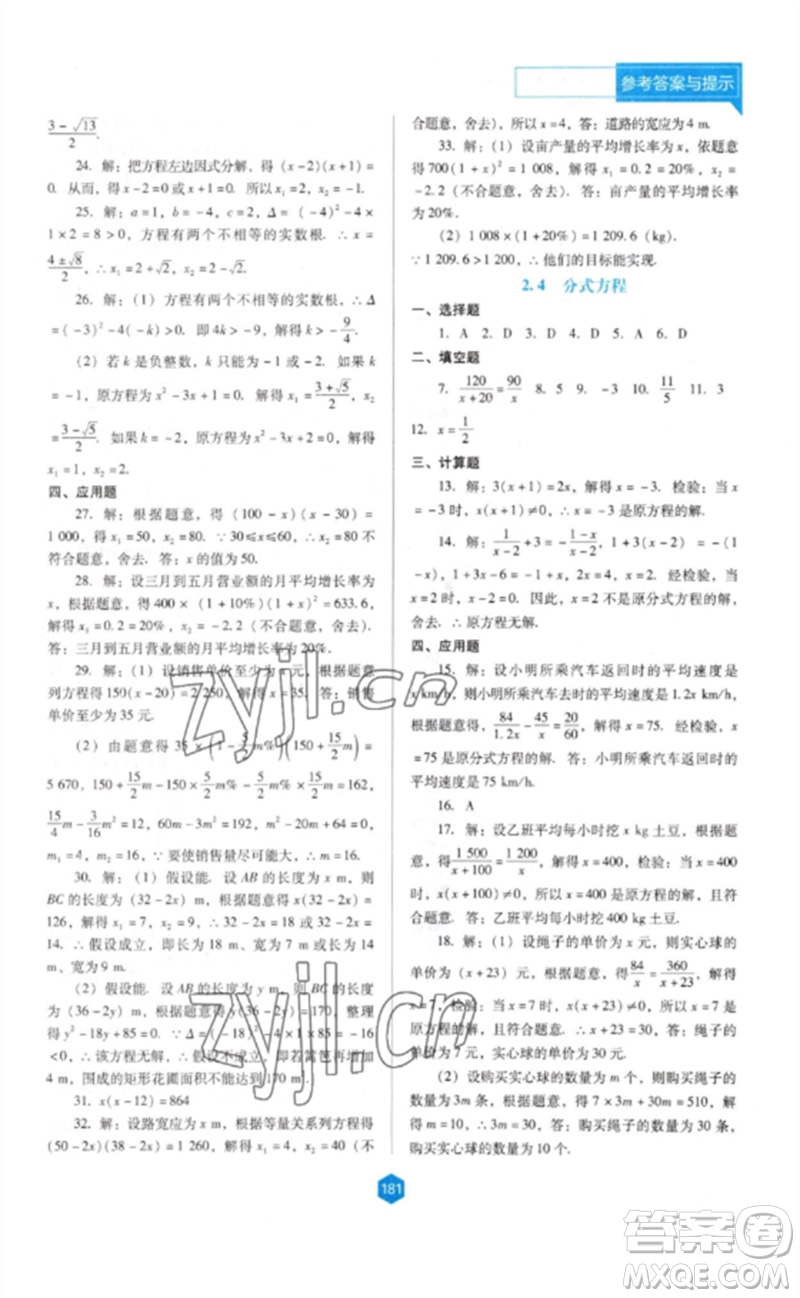 参考答案与提示
(3-√13)/2.
24. 解：把方程左边因式分解，得 (x-2)(x+1)=
0. 从而，得 x-2=0 或 x+1=0. 所以 x₁=2，x₂=-1.
25. 解：a=1，b=-4，c=2，Δ=(-4)²-4×
1×2=8>0，方程有两个不相等的实数根. ∴x=
(4±√8)/2，∴x₁=2+√2，x₂=2-√2.
26. 解：(1) 方程有两个不相等的实数根，∴Δ
=(-3)²-4(-k)>0. 即 4k>-9，解得 k>-9/4.
(2) 若 k 是负整数，k 只能为 -1 或 -2. 如果 k
=-1，原方程为 x²-3x+1=0. 解得 x₁=(3+√5)/2，x₂
=(3-√5)/2. 如果 k=-2，原方程为 x²-3x+2=0，解得
x₁=1，x₂=2.
四、应用题
27. 解：根据题意，得 (100-x)(x-30)=
1 000，解得 x₁=50，x₂=80. ∵30≤x≤60，∴x₂=80 不
符合题意，舍去. 答：x 的值为 50.
28. 解：设三月到五月营业额的月平均增长率为
x，根据题意，得 400×(1+10%)(1+x)²=633.6，
解得 x₁=0.2=20%，x₂=-2.2（不合题意，舍去）.
答：三月到五月营业额的月平均增长率为 20%.
29. 解：(1) 设销售单价至少为 x 元，根据题意
列方程得 150(x-20)=2 250，解得 x=35. 答：销售
单价至少为 35 元.
(2) 由题意得 35×(1-5/2m%)(150+15/2m)=
5 670，150+15/2m-150×5/2m%-5/2m%×15/2m=162，
15/4m-3/16m²=12，60m-3m²=192，m²-20m+64=0，
m₁=4，m₂=16，∵要使销售量尽可能大，∴m=16.
30. 解：(1) 假设能. 设 AB 的长度为 x m，则
BC 的长度为 (32-2x) m，根据题意得 x(32-2x)=
126，解得 x₁=7，x₂=9，∴32-2x=18 或 32-2x=
14. ∴假设成立，即长为 18 m、宽为 7 m 或长为 14
m、宽为 9 m.
(2) 假设能. 设 AB 的长度为 y m，则 BC 的长度
为 (36-2y) m，根据题意得 y(36-2y)=170，整理
得 y²-18y+85=0. ∵Δ=(-18)²-4×1×85=-16
<0，∴该方程无解，∴假设不成立，即若篱笆再增加
4 m，围成的矩形花圃面积不能达到 170 m².
31. x(x-12)=864
32. 解：设路宽应为 x m，根据等量关系列方程得
(50-2x)(38-2x)=1 260，解得 x₁=4，x₂=40（不
合题意，舍去），所以 x=4，答：道路的宽应为 4 m.
33. 解：(1) 设亩产量的平均增长率为 x，依题意
得 700(1+x)²=1 008，解得 x₁=0.2=20%，x₂=
-2.2（不合题意，舍去）. 答：亩产量的平均增长率
为 20%.
(2) 1 008×(1+20%)=1 209.6 (kg).
∵1 209.6>1 200，∴他们的目标能实现.
2.4 分式方程
一、选择题
1. A 2. D 3. D 4. D 5. A 6. D
二、填空题
7. 120/(x+20)=90/x 8. 5 9. -3 10. 11/5 11. 3
12. x=1/2
三、计算题
13. 解：3(x+1)=2x，解得 x=-3. 检验：当 x
=-3 时，x(x+1)≠0，∴x=-3 是原方程的解.
14. 解：1/(x-2)+3=-(1-x)/(x-2)，1+3(x-2)=-(1
-x)，1+3x-6=-1+x，2x=4，x=2. 经检验，当
x=2 时，x-2=0. 因此，x=2 不是原分式方程的解，
舍去，∴原方程无解.
四、应用题
15. 解：设小明所乘汽车返回时的平均速度是
x km/h，则小明所乘汽车去时的平均速度是 1.2x km/h，
根据题意，得 84/1.2x-45/x=20/60，解得 x=75. 经检验，x
=75 是原分式方程的解. 答：小明所乘汽车返回时的
平均速度是 75 km/h.
16. A
17. 解：设乙班平均每小时挖 x kg 土豆，根据题
意，得 1 500/(x+100)=1 200/x，解得 x=400，检验：当 x=400
时，x(x+100)≠0，所以 x=400 是原方程的解，且符
合题意. 答：乙班平均每小时挖 400 kg 土豆.
18. 解：(1) 设绳子的单价为 x 元，则实心球的
单价为 (x+23) 元，根据题意，得 84/x=360/(x+23)，解得 x
=7. 检验：当 x=7 时，x(x+23)≠0，所以 x=7 是
原方程的解，且符合题意，x+23=30. 答：绳子的
单价为 7 元，实心球的单价为 30 元.
(2) 设购买实心球的数量为 m 个，则购买绳子的数
量为 3m 条，根据题意，得 7×3m+30m=510，解得
m=10，∴3m=30. 答：购买绳子的数量为 30 条，
购买实心球的数量为 10 个.
181
zyjl.cn
zyjl.cn
答案卷
MXQE.COM